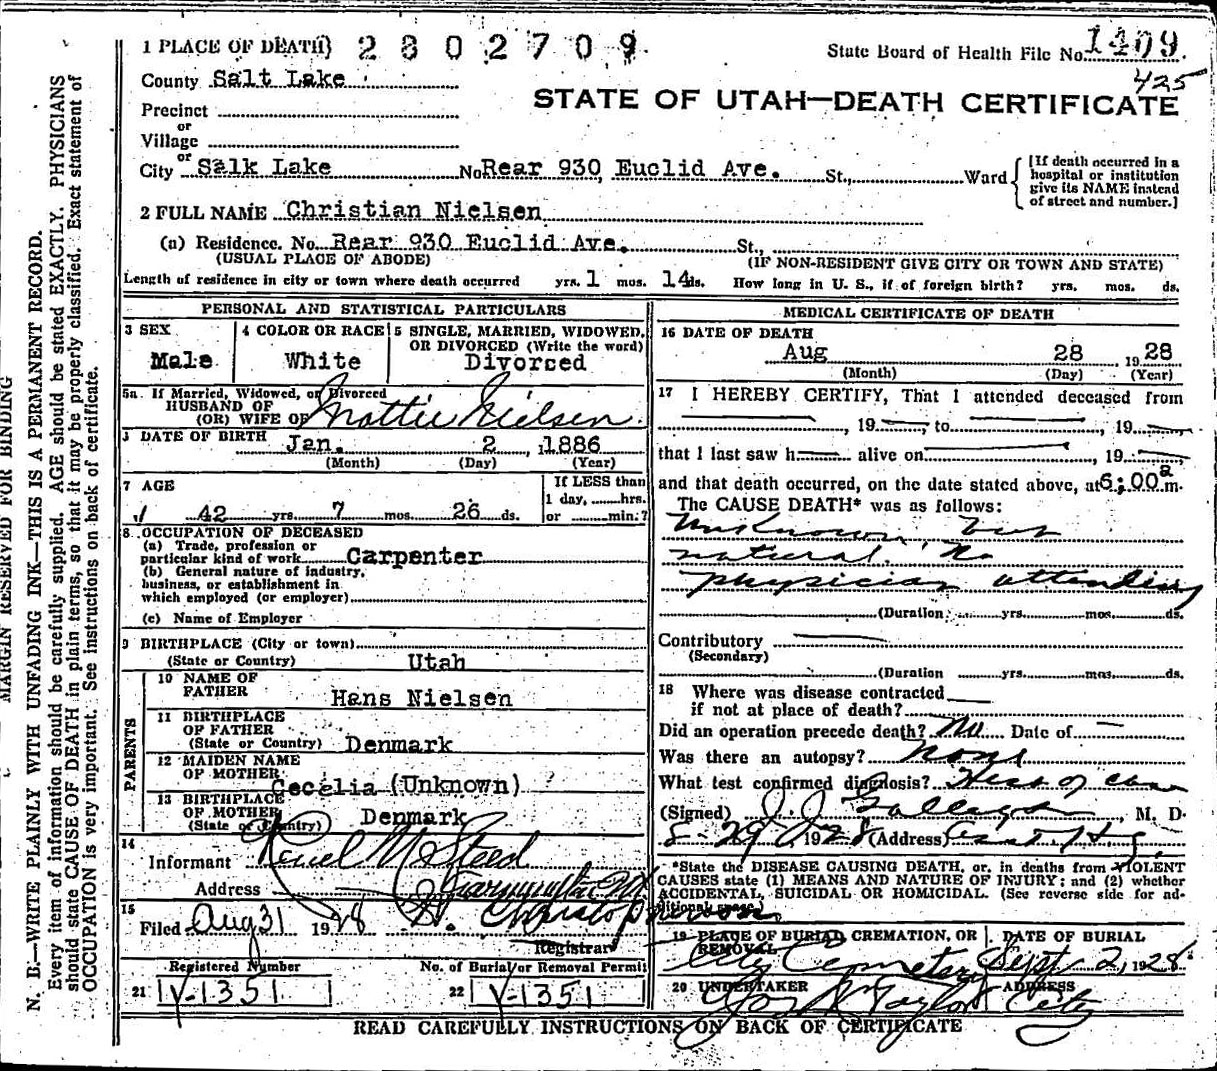 1 PLACE OF DEATH) 2802709. State Board of Health File No. 1409.
425
County Salt Lake
STATE OF UTAH—DEATH CERTIFICATE
Precinct
or
Village
or
City Salk Lake No. Rear 930 Euclid Ave. St., Ward
[If death occurred in a hospital or institution give its NAME instead of street and number.]
2 FULL NAME Christian Nielsen
(a) Residence. No. Rear 930 Euclid Ave. St.,
(USUAL PLACE OF ABODE) (IF NON-RESIDENT GIVE CITY OR TOWN AND STATE)
Length of residence in city or town where death occurred yrs. 1 mos. 14 ds. How long in U. S., if of foreign birth? yrs. mos. ds.
PERSONAL AND STATISTICAL PARTICULARS
3 SEX
Male
4 COLOR OR RACE
White
5 SINGLE, MARRIED, WIDOWED,
OR DIVORCED (Write the word)
Divorced
5a If Married, Widowed, or Divorced
HUSBAND OF
(OR) WIFE OF Mattie Nielsen
DATE OF BIRTH Jan. 2, 1886
(Month) (Day) (Year)
7 AGE
42 yrs. 7 mos. 26 ds.
If LESS than
1 day, hrs.
or min.?
8 OCCUPATION OF DECEASED
(a) Trade, profession or
particular kind of work Carpenter
(b) General nature of industry,
business, or establishment in
which employed (or employer)
(c) Name of Employer
9 BIRTHPLACE (City or town)
(State or Country) Utah
PARENTS
10 NAME OF
FATHER Hans Nielsen
11 BIRTHPLACE
OF FATHER
(State or Country) Denmark
12 MAIDEN NAME
OF MOTHER Cecelia (Unknown)
13 BIRTHPLACE
OF MOTHER
(State or Country) Denmark
14
Informant Reuel M Steed
Address
15
Filed Aug 31 1928 H. Christopherson
Registrar
Registered Number
21 Y-1351
No. of Burial or Removal Permit
22 Y-1351
MEDICAL CERTIFICATE OF DEATH
16 DATE OF DEATH
Aug 28 1928
(Month) (Day) (Year)
17 I HEREBY CERTIFY, That I attended deceased from
, 19 , to , 19
that I last saw h alive on , 19
and that death occurred, on the date stated above, at 6:00 a m.
The CAUSE DEATH* was as follows:
Unknown, but
natural. No
physician attending
(Duration yrs. mos. ds.
Contributory
(Secondary)
(Duration yrs. mos. ds.
18 Where was disease contracted
if not at place of death?
Did an operation precede death? No Date of
Was there an autopsy? None
What test confirmed diagnosis? Hess of case
(Signed) J. J. Galligan M. D.
8-29 1928 (Address)
*State the DISEASE CAUSING DEATH, or, in deaths from VIOLENT
CAUSES state (1) MEANS AND NATURE OF INJURY; and (2) whether
ACCIDENTAL, SUICIDAL OR HOMICIDAL. (See reverse side for ad-
ditional space.)
19 PLACE OF BURIAL, CREMATION, OR
REMOVAL
City Cemetery
DATE OF BURIAL
Sept 2, 1928
20 UNDERTAKER
Jos Taylor
ADDRESS
City
READ CAREFULLY INSTRUCTIONS ON BACK OF CERTIFICATE
MARGIN RESERVED FOR BINDING
N. B.—WRITE PLAINLY WITH UNFADING INK—THIS IS A PERMANENT RECORD.
Every item of information should be carefully supplied. AGE should be stated EXACTLY. PHYSICIANS
should state CAUSE OF DEATH in plain terms, so that it may be properly classified. Exact statement of
OCCUPATION is very important. See instructions on back of certificate.